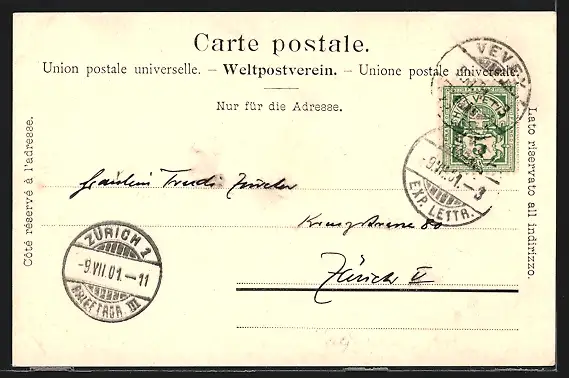 Carte postale.
Union postale universelle. – Weltpostverein. – Unione postale universale.
Nur für die Adresse.
Côté réservé à l'adresse.
Lato riservato all indirizzo.
VEVEY
HELVETIA
5
-9.VII.01.-3
EXP. LETTR.
Fräulein Trudi
Kreuzstrasse 80
Zürich V
ZÜRICH 1
-9.VII.01.-11
BRIEFTRGR. III